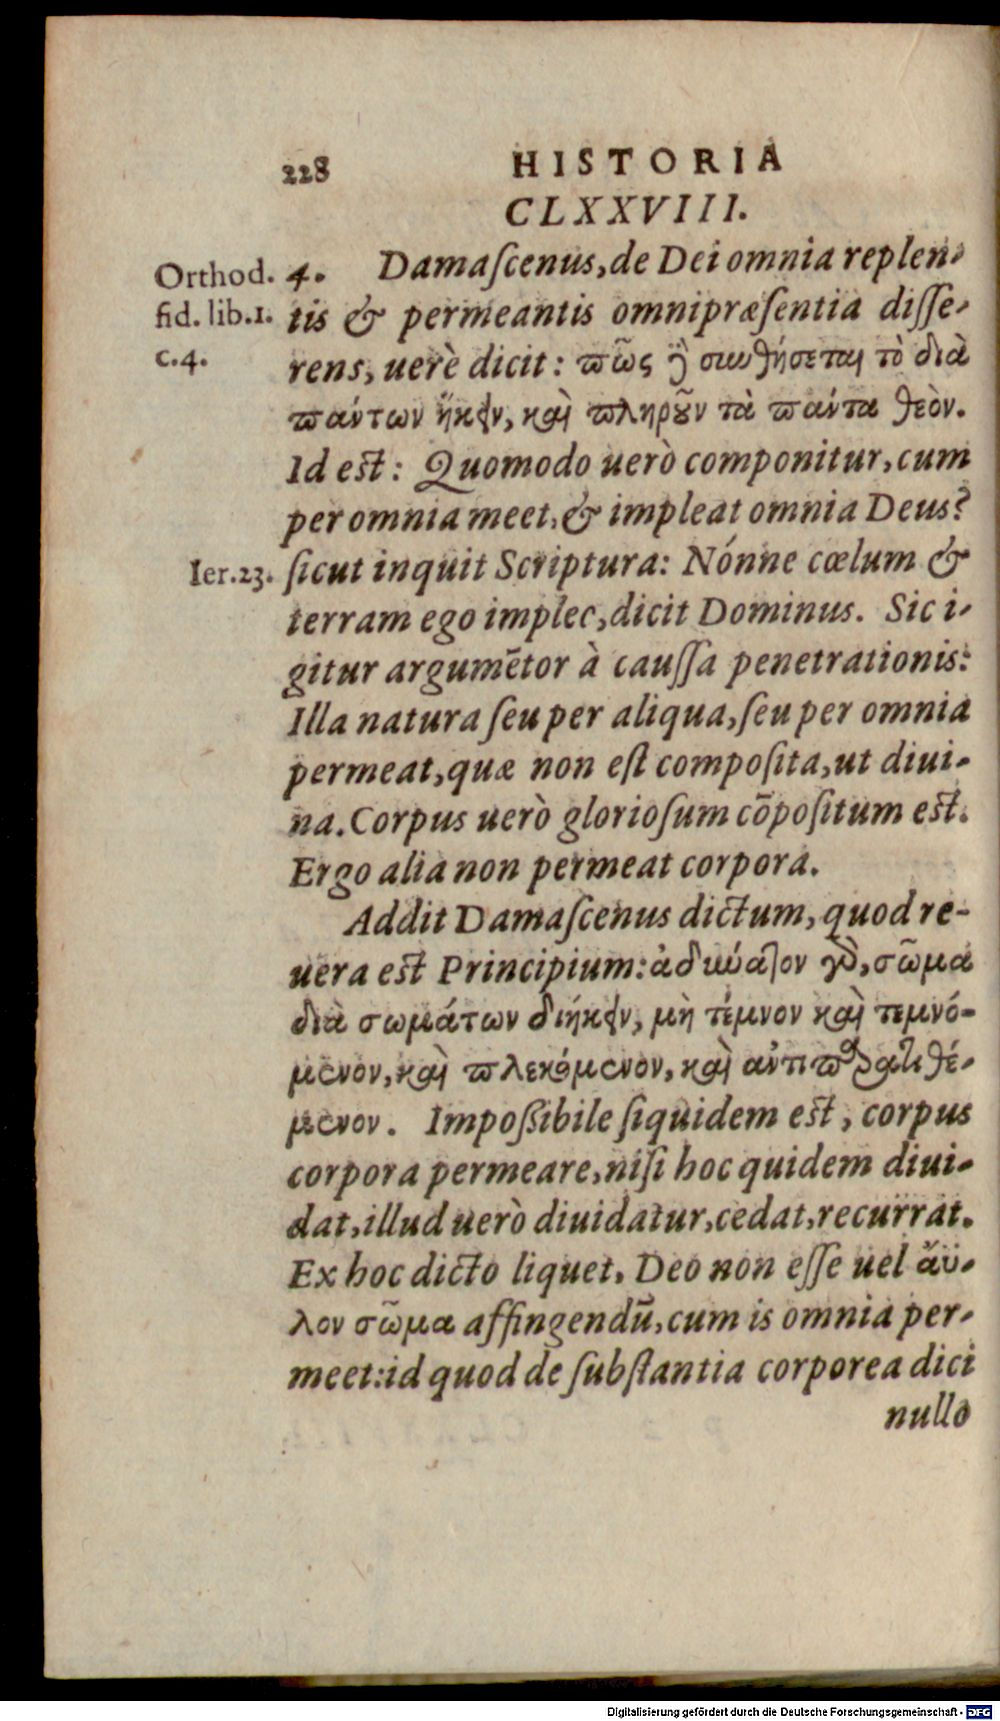 228 HISTORIA
CLXXVIII.
Orthod. 4. Damaſcenus, de Dei omnia replen-
fid. lib.1. tis & permeantis omnipræſentia diſſe-
c.4. rens, uerè dicit: πῶς ἢ συνθήσεται τὸ διὰ
πάντων ἥκειν, καὶ πληροῦν τὰ πάντα θεὸν.
Id est: Quomodo uerò componitur, cum
per omnia meet, & impleat omnia Deus?
Ier.23. ſicut inquit Scriptura: Nónne cœlum &
terram ego impleo, dicit Dominus. Sic i-
gitur argumētor à cauſſa penetrationis:
Illa natura ſeu per aliqua, ſeu per omnia
permeat, quæ non eſt compoſita, ut diui-
na. Corpus uerò glorioſum cōpoſitum est.
Ergo alia non permeat corpora.
Addit Damaſcenus dictum, quod re-
uera est Principium: ἀδύνατον γὸ, σῶμα
διὰ σωμάτων διήκειν, μὴ τέμνον καὶ τεμνό-
μενον, καὶ πλεκόμενον, καὶ ἀντιπαρατιθέ-
μενον. Impoßibile ſiquidem est, corpus
corpora permeare, niſi hoc quidem diui-
dat, illud uerò diuidatur, cedat, recurrat.
Ex hoc dicto liquet, Deo non eſſe uel ἄϋ-
λον σῶμα affingendū, cum is omnia per-
meet: id quod de ſubſtantia corporea dici
nullo
Digitalisierung gefördert durch die Deutsche Forschungsgemeinschaft - DFG